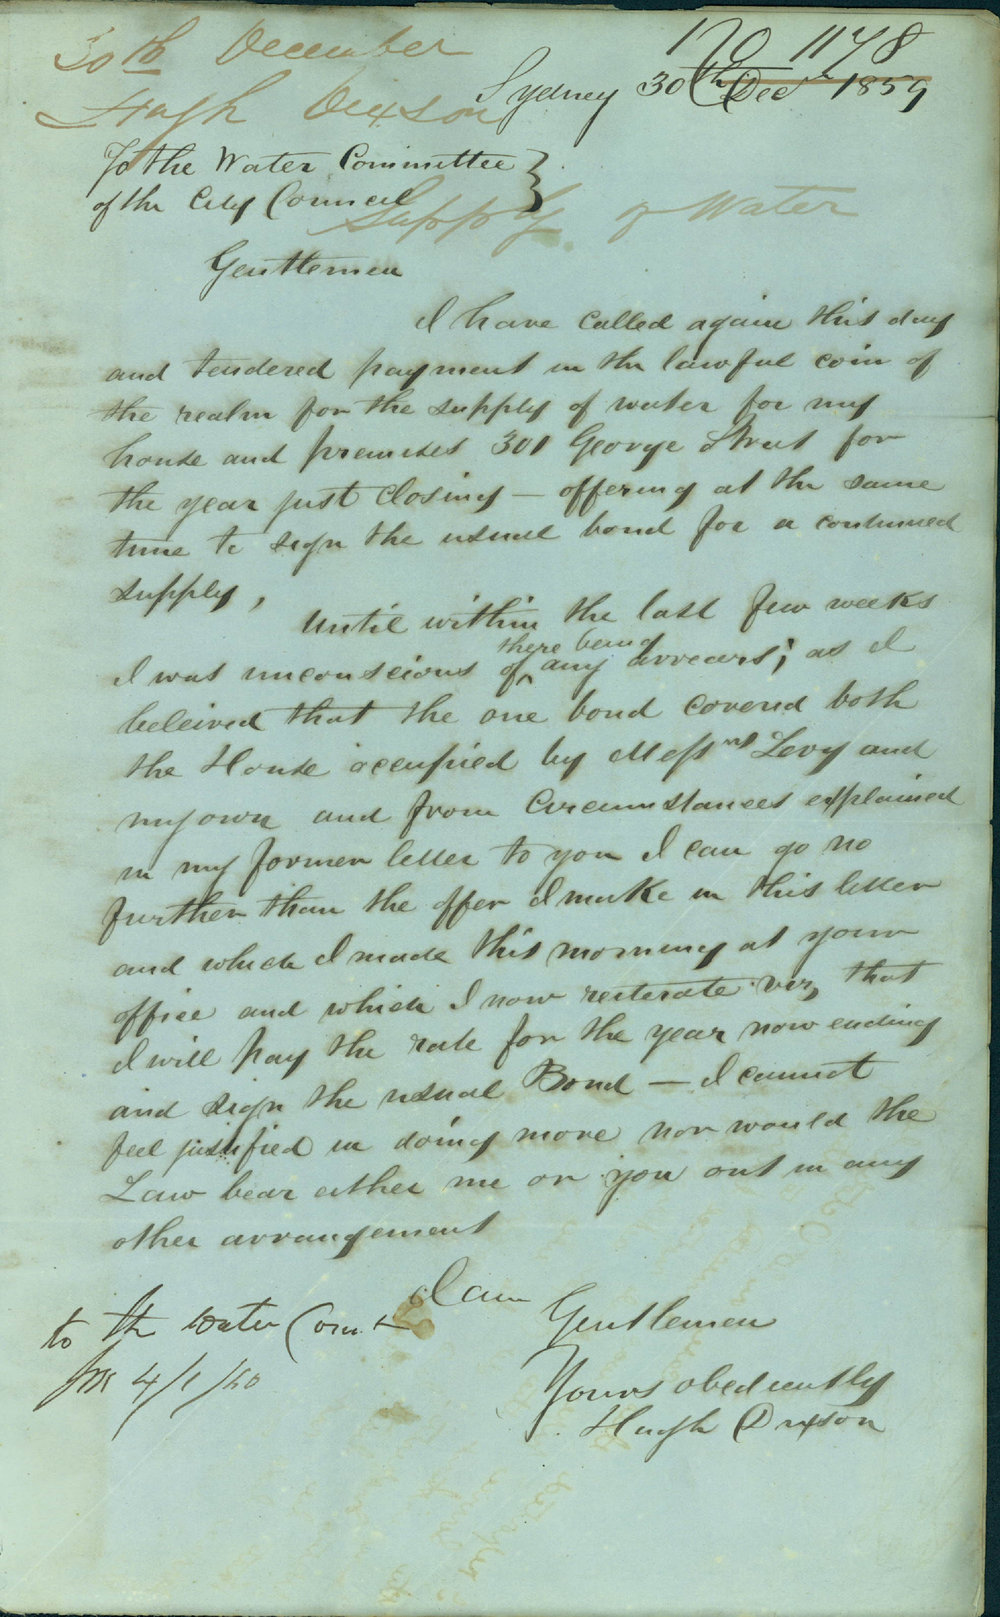 30th December
Hugh Dixson
Supply of Water
120 1178
Sydney 30th Decr 1859
To the Water Committee
of the City Council
Gentlemen
I have called again this day
and tendered payment in the lawful coin of
the realm for the supply of water for my
house and premises 301 George Street for
the year just closing — offering at the same
time to sign the usual bond for a continued
supply,
Until within the last few weeks
I was unconscious of there being any arrears; as I
beleived that the one bond covered both
the House occupied by Messrs Levy and
my own and from Circumstances explained
in my former letter to you I can go no
further than the offer I make in this letter
and which I made this morning at your
office and which I now reiterate viz, that
I will pay the rate for the year now ending
and sign the usual Bond — I cannot
feel justified in doing more nor would the
Law bear either me or you out in any
other arrangement
I am
Gentlemen
Yours obediently
Hugh Dixson
to the Water Com.
4/1/60